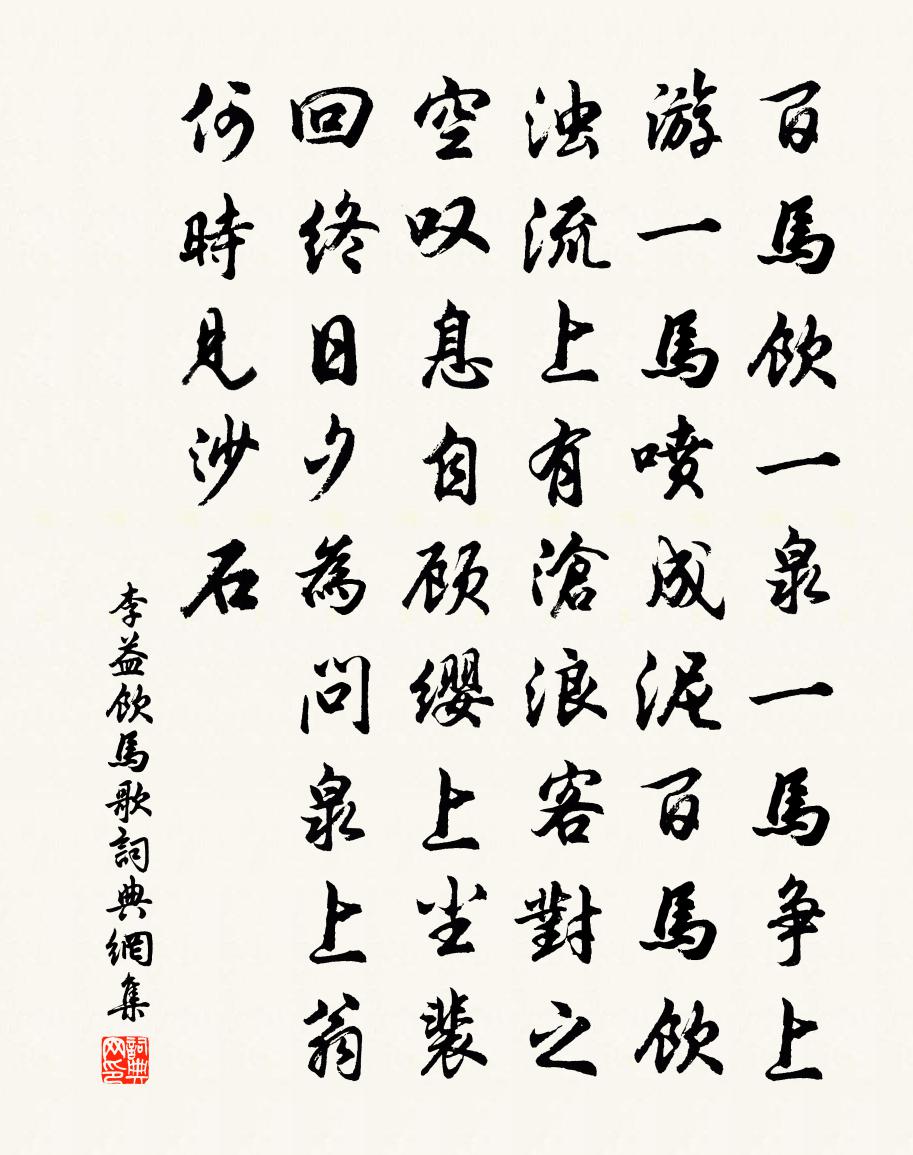 百馬飲一泉一馬争上
游一馬噴成泥百馬飲
浊流上有滄浪客對之
空叹息自顾缨上尘裴
回终日夕為问泉上翁
何時見沙石
李益飲馬歌詞典網集
詞典网印